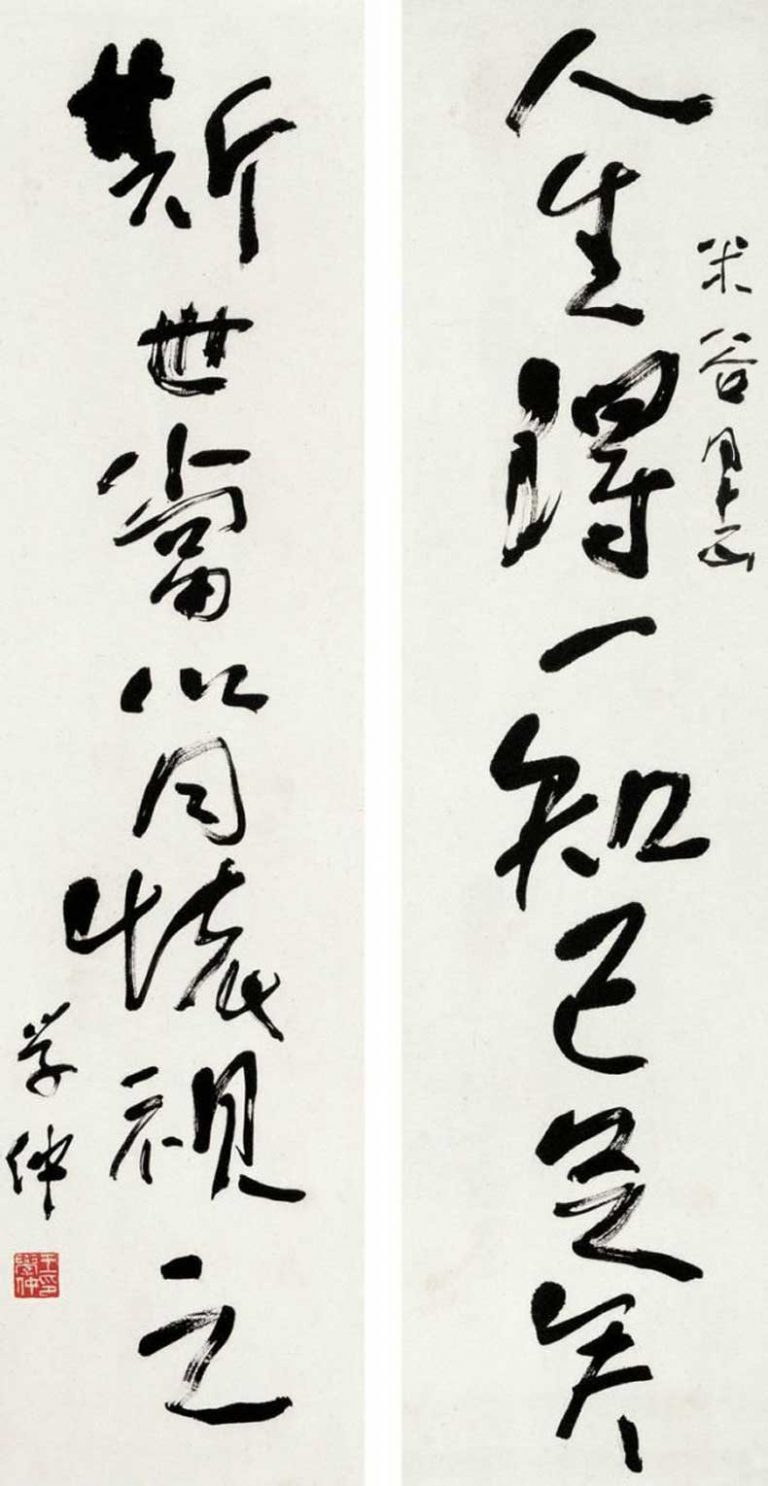 米谷
人生得一知己足矣
斯世當以同懷視之
学仲
王學仲印